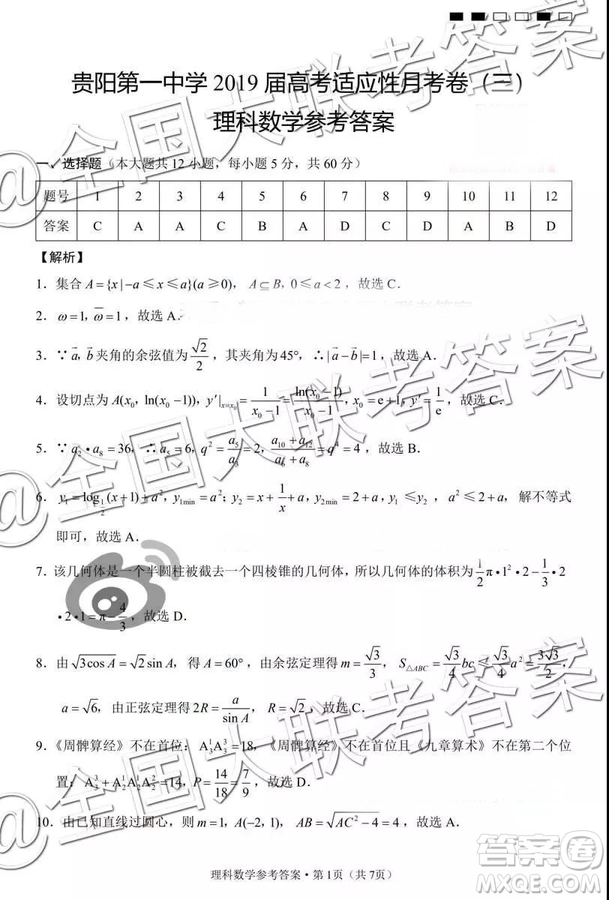 贵阳第一中学 2019 届高考适应性月考卷（三）
理科数学参考答案
一、选择题（本大题共 12 小题，每小题 5 分，共 60 分）
题号 1 2 3 4 5 6 7 8 9 10 11 12
答案 C A A C B A D C D A B D
【解析】
1．集合 A={x|-a≤x≤a}(a≥0)，A⊆B，0≤a<2，故选 C．
2．ω=1，ω̄=1，故选 A．
3．∵a⃗, b⃗ 夹角的余弦值为 √2/2，其夹角为45°，∴|a⃗-b⃗|=1，故选 A．
4．设切点为 A(x₀, ln(x₀-1))，y′|x=x₀ = 1/(x₀-1) = ln(x₀-1)/(x₀-1)，x₀=e+1，y′=1/e，故选 C．
5．∵a₂•a₈=36，∴a₅=6，q²=a₅/a₃=2，(a₁₀+a₁₂)/(a₆+a₈)=q⁴=4，故选 B．
6．y₁=log_{1/2}(x+1)+a²，y₁min=a²；y₂=x+1/x+a，y₂min=2+a，y₁≤y₂，a²≤2+a，解不等式
即可，故选 A．
7．该几何体是一个半圆柱被截去一个四棱锥的几何体，所以几何体的体积为 1/2 π•1²•2-1/3•2
•2•1=π-4/3，故选 D．
8．由 √3cosA=√2sinA，得 A=60°，由余弦定理得 m=√3/3，S△ABC=√3/4 bc≤√3/4 a²=3√3/2，
a=√6，由正弦定理得 2R=a/sinA，R=√2，故选 C．
9．《周髀算经》不在首位：A₃¹A₃³=18，《周髀算经》不在首位且《九章算术》不在第二个位
置：A₃³+A₂¹A₂¹A₂²=14，P=14/18=7/9，故选 D．
10．由已知直线过圆心，则 m=1，A(-2, 1)，AB=√(AC²-4)=4，故选 A．
理科数学参考答案·第 1页（共 7页）
@全国大联考答案
@全国大联考答案
@全国大联考答案
答案圈
MXQE.COM